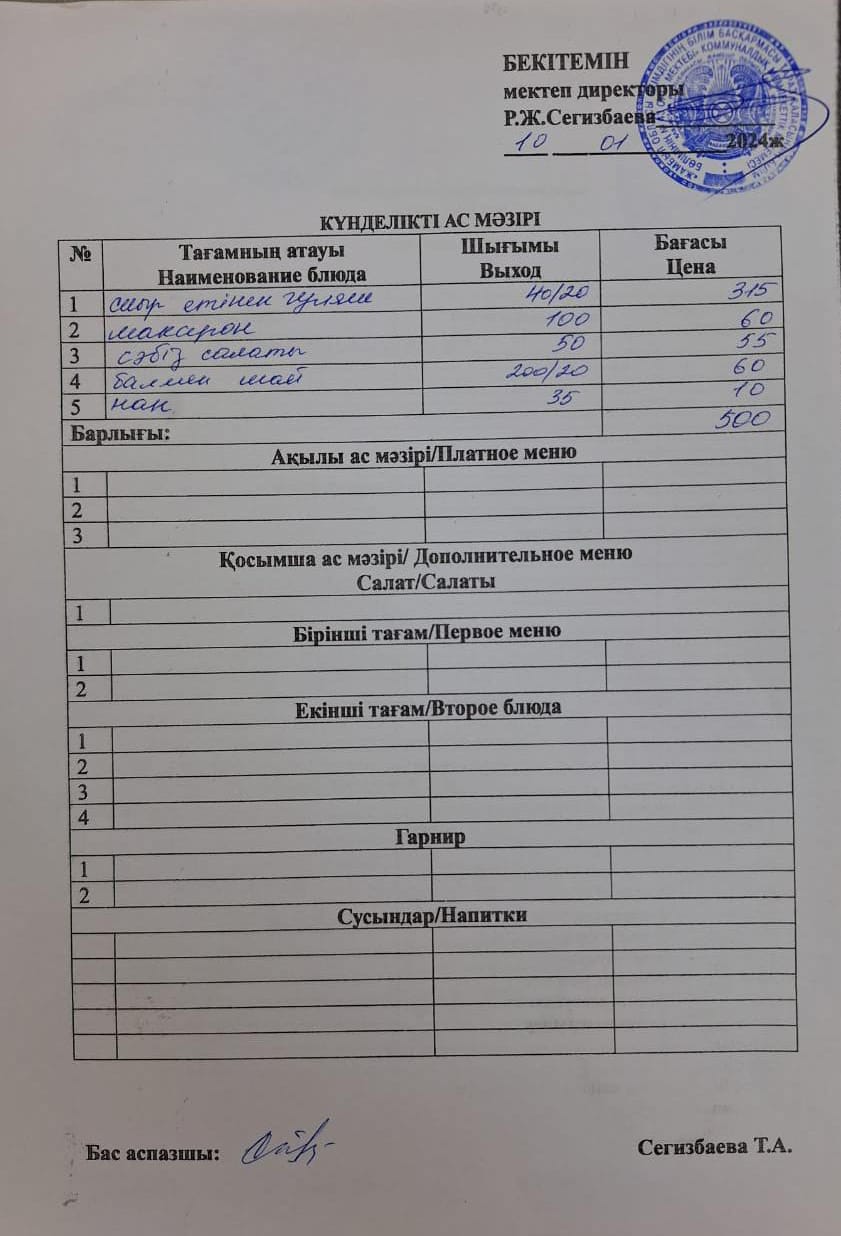 БЕКІТЕМІН
мектеп директоры
Р.Ж.Сегизбаева
10 01 2024ж
КҮНДЕЛІКТІ АС МӘЗІРІ
№ Тағамның атауы Шығымы Бағасы
Наименование блюда Выход Цена
1 сиыр етінен гуляш 40/20 315
2 макарон 100 60
3 сәбіз салаты 50 55
4 балмен шай 200/20 60
5 нан 35 10
Барлығы: 500
Ақылы ас мәзірі/Платное меню
1
2
3
Қосымша ас мәзірі/ Дополнительное меню
Салат/Салаты
1
Бірінші тағам/Первое меню
1
2
Екінші тағам/Второе блюда
1
2
3
4
Гарнир
1
2
Сусындар/Напитки
Бас аспазшы: Сегизбаева Т.А.